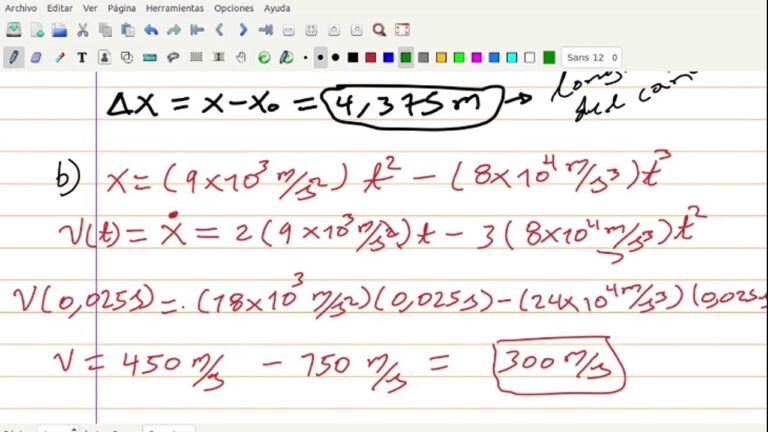 Archivo Editar Ver Página Herramientas Opciones Ayuda
Sans 12
ΔX = X-X₀ = 4,375m →
b) X = (9x10³ m/s²) t² - (8x10⁴ m/s³)t³
V(t) = Ẋ = 2(9x10³ m/s²)t - 3(8x10⁴ m/s³)t²
V(0,025s) = (18x10³ m/s²)(0,025s)-(24x10⁴ m/s³)(0,025s
V = 450 m/s - 750 m/s = 300 m/s